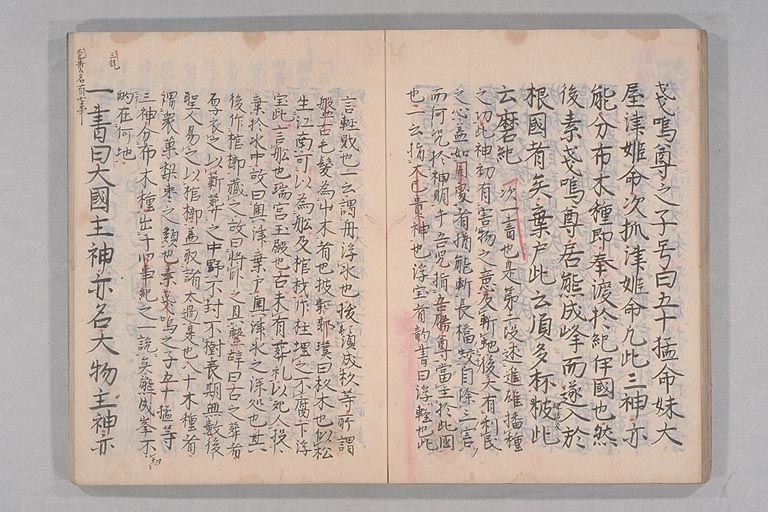 戔嗚尊之子号曰五十猛命妹大
屋津姫命次抓津姫命凡此三神亦
能分布木種即奉渡於紀伊國也然
後素戔嗚尊居熊成峰而遂入於
根國者矣棄戸此云須多杯柀此
云磨紀 次一書也是第二段述進雄播種
之功此神初有害物之意及斬虵後大有利民
之心蓋如周處者捎能斬長橋蛟自除三害
而何況於神明乎吾児指吾勝尊當主於此國
也一云指大己貴神也浮宝者韵書曰浮輕也此
言輕敗也一云謂舟浮水也後鬚成杉等所謂
盤古毛髪為艸木者也披郭璞曰杉木也似松
生江南可以為舩及棺材作柱埋之不腐下浮
宝此言舩也瑞宮玉殿也古未有葬礼以死人投
棄於水中故曰奥津棄戸奥津水之深処也其
後作棺槨藏之故曰将臥之且繫辞曰古之葬者
厚衣之以薪葬之中野不封不樹喪期無數後
聖人易之以棺槨蓋取諸大過是也八十木種者
謂衆菓梨棗之類也素戔嗚之子五十猛等
三神分布木種出于旧事紀之一説矣熊成峯不
的在何地
一書曰大國主神亦名大物主神亦